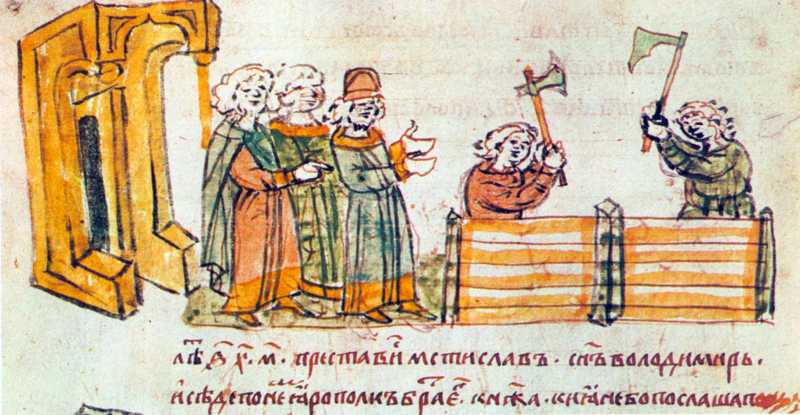 лѣ҃ ҂ѕ҃ х҃ м҃ · престави҃ мстиславъ · сн҃ъ володимирь ·
и сѣде по нем ꙗрополкъ бра е҃ · кнѧжа · киꙗне бо послаша по